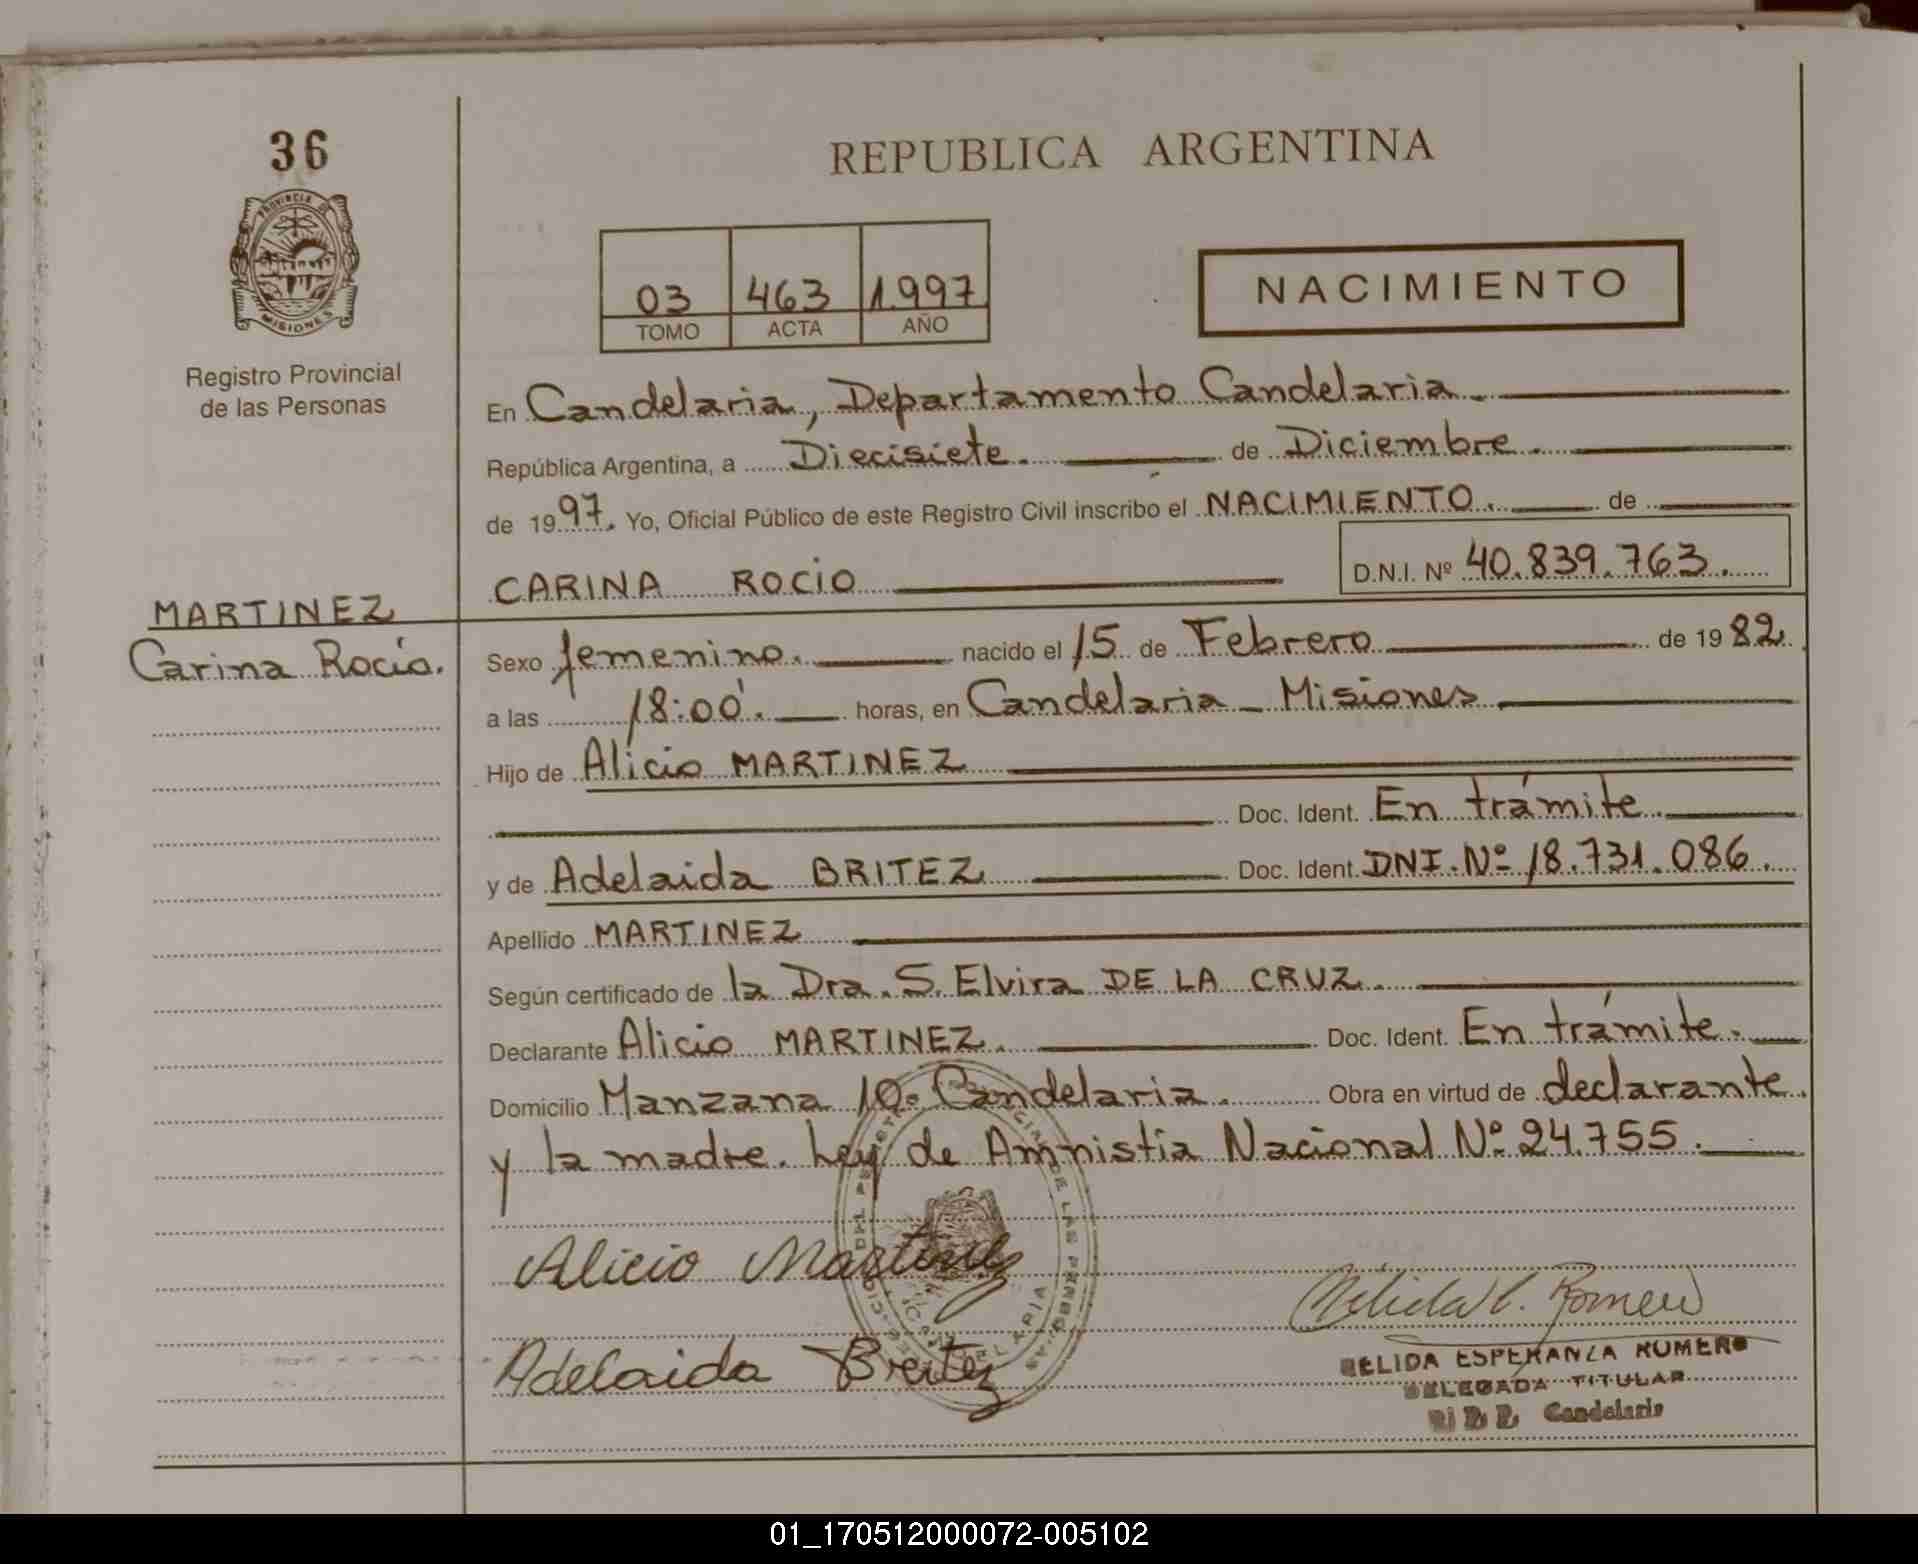 36
REPUBLICA ARGENTINA
PROVINCIA DE
MISIONES
Registro Provincial
de las Personas
03 463 1.997
TOMO ACTA AÑO
NACIMIENTO
En Candelaria, Departamento Candelaria.
República Argentina, a Diecisiete. de Diciembre.
de 1997. Yo, Oficial Público de este Registro Civil inscribo el NACIMIENTO. de
CARINA ROCIO D.N.I. Nº 40.839.763.
MARTINEZ
Carina Rocío.
Sexo femenino. nacido el 15 de Febrero de 1982.
a las 18:00'. horas, en Candelaria - Misiones
Hijo de Alicio MARTINEZ
Doc. Ident. En trámite.
y de Adelaida BRITEZ Doc. Ident. DNI. Nº 18.731.086.
Apellido MARTINEZ
Según certificado de la Dra. S. Elvira DE LA CRUZ.
Declarante Alicio MARTINEZ. Doc. Ident. En trámite.
Domicilio Manzana 10. Candelaria. Obra en virtud de declarante
y la madre. Ley de Amnistía Nacional Nº 24.755.
Alicio Martinez
Adelaida Britez
NELIDA ESPERANZA ROMERO
DELEGADA TITULAR
Candelaria
01_170512000072-005102